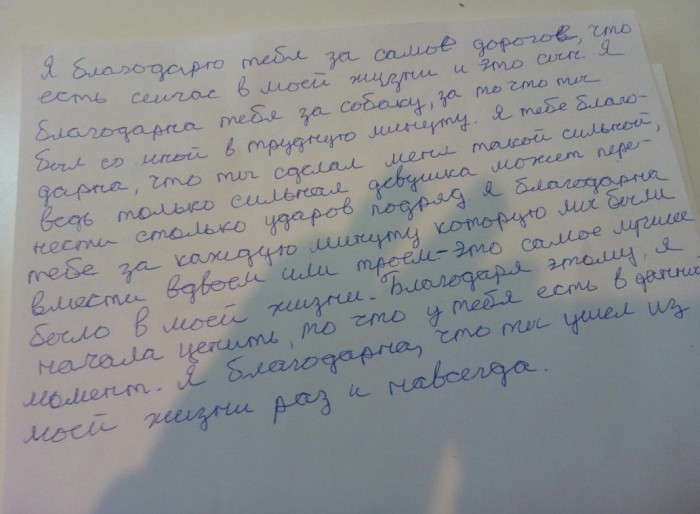 Я благодарю тебя за самое дорогое, что
есть сейчас в моей жизни и это сын. Я
благодарна тебя за собаку, за то что ты
был со мной в трудную минуту. Я тебе благо-
дарна, что ты сделал меня такой сильной,
ведь только сильная девушка может пере-
нести столько ударов подряд я благодарна
тебе за каждую минуту которую мы были
вмести вдвоем или троем-это самое лучшее
было в моей жизни. Благодаря этому, я
начала ценить, то что у тебя есть в данный
момент. Я благодарна, что ты ушел из
моей жизни раз и навсегда.